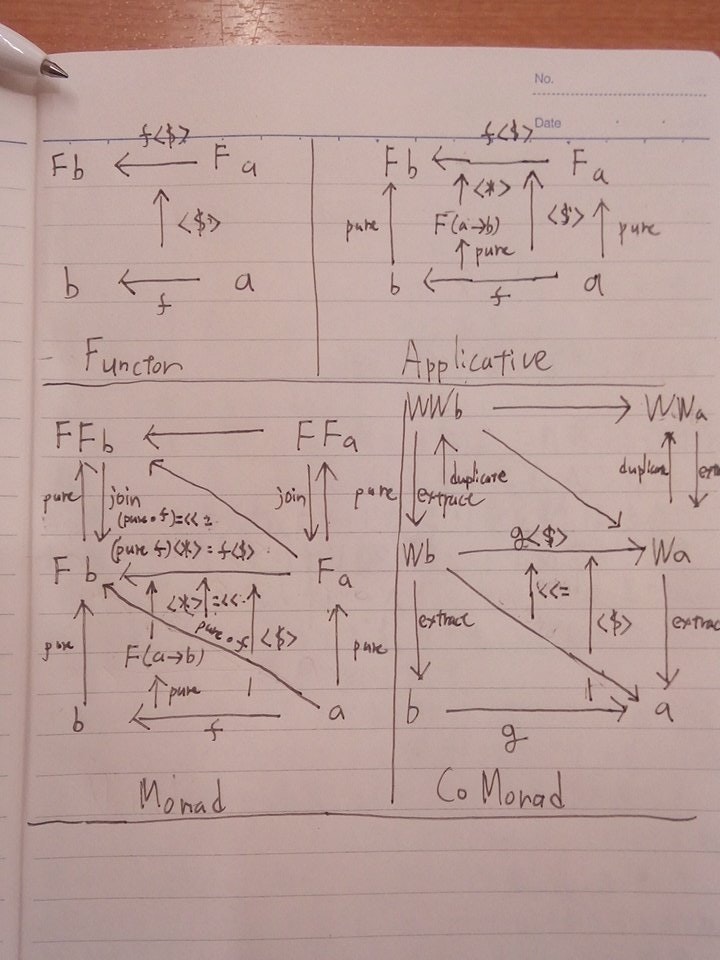 No.
Date
f<$>
Fb Fa
<$>
b a
f
Functor
f<$>
Fb Fa
<*>
pure F(a→b) <$> pure
pure
b a
f
Applicative
FFb FFa
pure join join pure
(pure∘f)=<<
(pure f)<*> = f<$>
Fb Fa
<*> =<<
pure∘f <$>
pure F(a→b) pure
pure
b a
f
Monad
WWb WWa
extract duplicate duplicate
g<$>
Wb Wa
<<=
extract <$> extract
b a
g
CoMonad